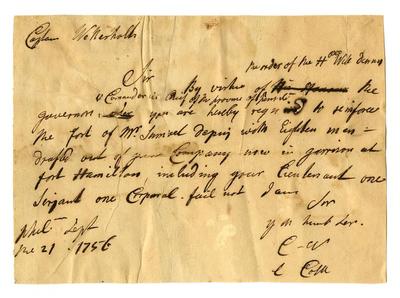 Captn Wetterholts
the order of the Honble Wm Denny
Sir By virtue of the
& Comander in Chief of the province of
governor you are hereby requird to reinforce
the fort of Mr. Samuel Depuy with Eighteen men
drafted out of your Company now in garrison at
fort Hamilton, including your Lieutenant one
Sirjant one Corporal. fail not I am
Sir
Philn Sept yr Humb Ser.
the 21 1756 C W
L Coll